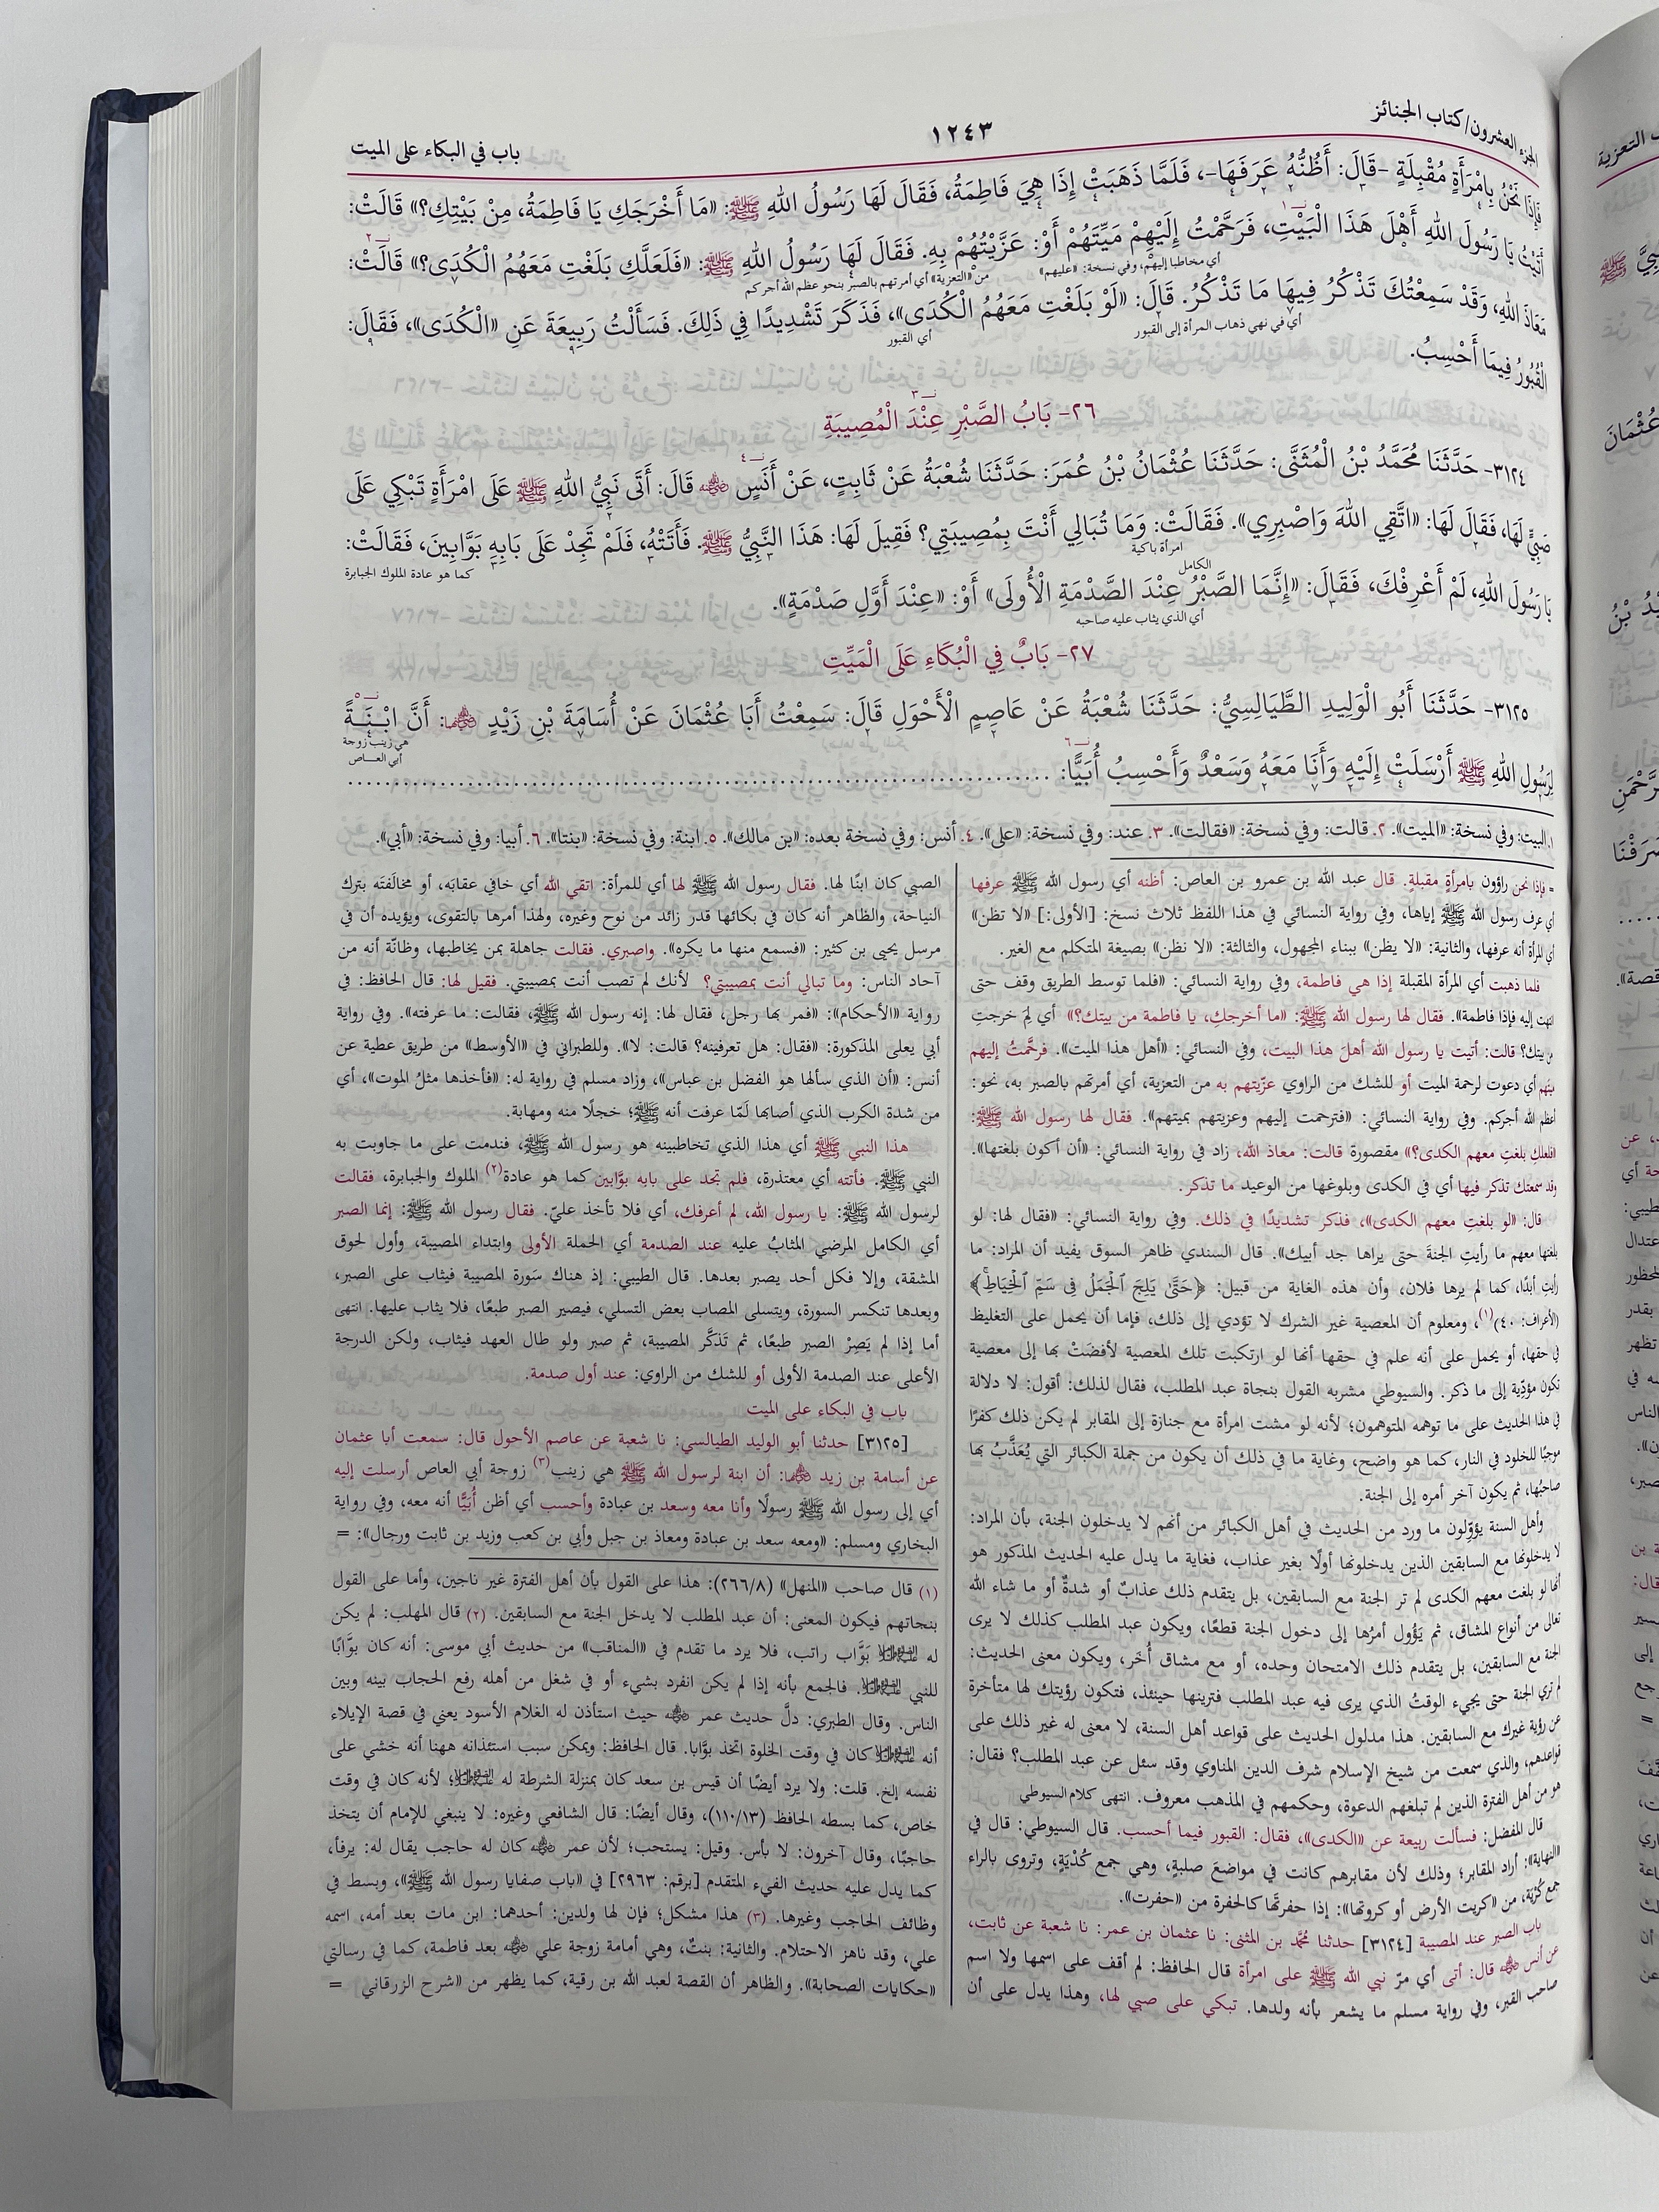 الجزء العشرون/كتاب الجنائز
١٢٤٣
باب في البكاء على الميت
فَإِذَا نَحْنُ بِامْرَأَةٍ مُقْبِلَةٍ -قَالَ: أَظُنُّهُ عَرَفَهَا-، فَلَمَّا ذَهَبَتْ إِذَا هِيَ فَاطِمَةُ، فَقَالَ لَهَا رَسُولُ اللهِ ﷺ: «مَا أَخْرَجَكِ يَا فَاطِمَةُ، مِنْ بَيْتِكِ؟» قَالَتْ:
أَتَيْتُ يَا رَسُولَ اللهِ أَهْلَ هَذَا الْبَيْتِ، فَرَحَّمْتُ إِلَيْهِمْ مَيِّتَهُمْ أَوْ: عَزَّيْتُهُمْ بِهِ. فَقَالَ لَهَا رَسُولُ اللهِ ﷺ: «فَلَعَلَّكِ بَلَغْتِ مَعَهُمُ الْكُدَى؟» قَالَتْ:
أي مخاطبا إليهم، وفي نسخة: «عليهم»
من «التعزية» أي أمرتهم بالصبر بنحو عظم الله أجركم
مَعَاذَ اللهِ، وَقَدْ سَمِعْتُكَ تَذْكُرُ فِيهَا مَا تَذْكُرُ. قَالَ: «لَوْ بَلَغْتِ مَعَهُمُ الْكُدَى»، فَذَكَرَ تَشْدِيدًا فِي ذَلِكَ. فَسَأَلْتُ رَبِيعَةَ عَنِ «الْكُدَى»، فَقَالَ:
أي في نهي ذهاب المرأة إلى القبور
أي القبور
الْقُبُورُ فِيمَا أَحْسِبُ.
٢٦- بَابُ الصَّبْرِ عِنْدَ الْمُصِيبَةِ
٣١٢٤- حَدَّثَنَا مُحَمَّدُ بْنُ الْمُثَنَّى: حَدَّثَنَا عُثْمَانُ بْنُ عُمَرَ: حَدَّثَنَا شُعْبَةُ عَنْ ثَابِتٍ، عَنْ أَنَسٍ ؓ قَالَ: أَتَى نَبِيُّ اللهِ ﷺ عَلَى امْرَأَةٍ تَبْكِي عَلَى
صَبِيٍّ لَهَا، فَقَالَ لَهَا: «اتَّقِي اللهَ وَاصْبِرِي». فَقَالَتْ: وَمَا تُبَالِي أَنْتَ بِمُصِيبَتِي؟ فَقِيلَ لَهَا: هَذَا النَّبِيُّ ﷺ. فَأَتَتْهُ، فَلَمْ تَجِدْ عَلَى بَابِهِ بَوَّابِينَ، فَقَالَتْ:
امرأة باكية
كما هو عادة الملوك الجبابرة
الكامل
يَا رَسُولَ اللهِ، لَمْ أَعْرِفْكَ، فَقَالَ: «إِنَّمَا الصَّبْرُ عِنْدَ الصَّدْمَةِ الْأُولَى» أَوْ: «عِنْدَ أَوَّلِ صَدْمَةٍ».
أي الذي يثاب عليه صاحبه
٢٧- بَابٌ فِي الْبُكَاءِ عَلَى الْمَيِّتِ
٣١٢٥- حَدَّثَنَا أَبُو الْوَلِيدِ الطَّيَالِسِيُّ: حَدَّثَنَا شُعْبَةُ عَنْ عَاصِمٍ الْأَحْوَلِ قَالَ: سَمِعْتُ أَبَا عُثْمَانَ عَنْ أُسَامَةَ بْنِ زَيْدٍ ؓ: أَنَّ ابْنَةً
هي زينب زوجة
أبي العاص
لِرَسُولِ اللهِ ﷺ أَرْسَلَتْ إِلَيْهِ وَأَنَا مَعَهُ وَسَعْدٌ وَأَحْسِبُ أُبَيًّا:
١. البيت: وفي نسخة: «الميت». ٢. قالت: وفي نسخة: «فقالت». ٣. عند: وفي نسخة: «على». ٤. أنس: وفي نسخة بعده: «بن مالك». ٥. ابنة: وفي نسخة: «بنتا». ٦. أبيا: وفي نسخة: «أبي».
= فإذا نحن راؤون بامرأةٍ مقبلةٍ. قال عبد الله بن عمرو بن العاص: أظنه أي رسول الله ﷺ عرفها
أي عرف رسول الله ﷺ إياها، وفي رواية النسائي في هذا اللفظ ثلاث نسخ: [الأولى:] «لا تظن»
أي المرأة أنه عرفها، والثانية: «لا يظن» ببناء المجهول، والثالثة: «لا نظن» بصيغة المتكلم مع الغير.
فلما ذهبت أي المرأة المقبلة إذا هي فاطمة، وفي رواية النسائي: «فلما توسط الطريق وقف حتى
انتهت إليه فإذا فاطمة». فقال لها رسول الله ﷺ: «ما أخرجكِ، يا فاطمة من بيتك؟» أي لِمَ خرجتِ
من بيتك؟ قالت: أتيت يا رسول الله أهلَ هذا البيت، وفي النسائي: «أهل هذا الميت». فرحَّمتُ إليهم
ميتَهم أي دعوت لرحمة الميت أو للشك من الراوي عزّيتهم به من التعزية، أي أمرتهم بالصبر به، نحو:
أعظم الله أجركم. وفي رواية النسائي: «فترحمت إليهم وعزيتهم بميتهم». فقال لها رسول الله ﷺ:
«فلعلكِ بلغتِ معهم الكدى؟» مقصورة قالت: معاذ الله، زاد في رواية النسائي: «أن أكون بلغتها».
وقد سمعتك تذكر فيها أي في الكدى وبلوغها من الوعيد ما تذكر.
قال: «لو بلغتِ معهم الكدى»، فذكر تشديدًا في ذلك. وفي رواية النسائي: «فقال لها: لو
بلغتها معهم ما رأيتِ الجنةَ حتى يراها جد أبيك». قال السندي ظاهر السوق يفيد أن المراد: ما
رأيتِ أبدًا، كما لم يرها فلان، وأن هذه الغاية من قبيل: ﴿حَتَّىٰ يَلِجَ ٱلْجَمَلُ فِى سَمِّ ٱلْخِيَاطِ﴾
(الأعراف: ٤٠)(١)، ومعلوم أن المعصية غير الشرك لا تؤدي إلى ذلك، فإما أن يحمل على التغليظ
في حقها، أو يحمل على أنه علم في حقها أنها لو ارتكبت تلك المعصية لأفضَتْ بها إلى معصية
تكون مؤدِّية إلى ما ذكر. والسيوطي مشربه القول بنجاة عبد المطلب، فقال لذلك: أقول: لا دلالة
في هذا الحديث على ما توهمه المتوهمون؛ لأنه لو مشت امرأة مع جنازة إلى المقابر لم يكن ذلك كفرًا
موجبًا للخلود في النار، كما هو واضح، وغاية ما في ذلك أن يكون من جملة الكبائر التي يُعَذَّبُ بها
صاحبُها، ثم يكون آخر أمره إلى الجنة.
وأهل السنة يؤوّلون ما ورد من الحديث في أهل الكبائر من أنهم لا يدخلون الجنة، بأن المراد:
لا يدخلونها مع السابقين الذين يدخلونها أولًا بغير عذاب، فغاية ما يدل عليه الحديث المذكور هو
أنها لو بلغت معهم الكدى لم تر الجنة مع السابقين، بل يتقدم ذلك عذابٌ أو شدةٌ أو ما شاء الله
تعالى من أنواع المشاق، ثم يَؤُول أمرُها إلى دخول الجنة قطعًا، ويكون عبد المطلب كذلك لا يرى
الجنة مع السابقين، بل يتقدم ذلك الامتحان وحده، أو مع مشاق أُخَر، ويكون معنى الحديث:
لم تري الجنة حتى يجيء الوقتُ الذي يرى فيه عبد المطلب فترينها حينئذ، فتكون رؤيتك لها متأخرة
عن رؤية غيرك مع السابقين. هذا مدلول الحديث على قواعد أهل السنة، لا معنى له غير ذلك على
قواعدهم، والذي سمعت من شيخ الإسلام شرف الدين المناوي وقد سئل عن عبد المطلب؟ فقال:
هو من أهل الفترة الذين لم تبلغهم الدعوة، وحكمهم في المذهب معروف. انتهى كلام السيوطي
قال المفضل: فسألت ربيعة عن «الكدى»، فقال: القبور فيما أحسب. قال السيوطي: قال في
«النهاية»: أراد المقابر؛ وذلك لأن مقابرهم كانت في مواضعَ صلبةٍ، وهي جمع كُدْيَةٍ، وتروى بالراء
جمع كُرْيَة، من «كريت الأرض أو كروتها»: إذا حفرتَها كالحفرة من «حفرت».
باب الصبر عند المصيبة [٣١٢٤] حدثنا محمّد بن المثنى: نا عثمان بن عمر: نا شعبة عن ثابت،
عن أنس ؓ قال: أتى أي مرّ نبي الله ﷺ على امرأة قال الحافظ: لم أقف على اسمها ولا اسم
صاحب القبر، وفي رواية مسلم ما يشعر بأنه ولدها. تبكي على صبي لها، وهذا يدل على أن
الصبي كان ابنًا لها. فقال رسول الله ﷺ لها أي للمرأة: اتقي الله أي خافي عقابَه، أو مخالَفتَه بترك
النياحة، والظاهر أنه كان في بكائها قدر زائد من نوح وغيره، ولهذا أمرها بالتقوى، ويؤيده أن في
مرسل يحيى بن كثير: «فسمع منها ما يكره». واصبري. فقالت جاهلة بمن يخاطبها، وظانّة أنه من
آحاد الناس: وما تبالي أنت بمصيبتي؟ لأنك لم تصب أنت بمصيبتي. فقيل لها: قال الحافظ: في
رواية «الأحكام»: «فمر بها رجل، فقال لها: إنه رسول الله ﷺ، فقالت: ما عرفته». وفي رواية
أبي يعلى المذكورة: «فقال: هل تعرفينه؟ قالت: لا». وللطبراني في «الأوسط» من طريق عطية عن
أنس: «أن الذي سألها هو الفضل بن عباس»، وزاد مسلم في رواية له: «فأخذها مثلُ الموت»، أي
من شدة الكرب الذي أصابها لَمّا عرفت أنه ﷺ؛ خجلًا منه ومهابة.
هذا النبي ﷺ أي هذا الذي تخاطبينه هو رسول الله ﷺ، فندمت على ما جاوبت به
النبي ﷺ. فأتته أي معتذرة، فلم تجد على بابه بوَّابين كما هو عادة(٢) الملوك والجبابرة، فقالت
لرسول الله ﷺ: يا رسول الله، لم أعرفك، أي فلا تأخذ عليّ. فقال رسول الله ﷺ: إنما الصبر
أي الكامل المرضي المثابُ عليه عند الصدمة أي الحملة الأولى وابتداء المصيبة، وأول لحوق
المشقة، وإلا فكل أحد يصبر بعدها. قال الطيبي: إذ هناك سَورة المصيبة فيثاب على الصبر،
وبعدها تنكسر السورة، ويتسلى المصاب بعض التسلي، فيصير الصبر طبعًا، فلا يثاب عليها. انتهى
أما إذا لم يَصِرْ الصبر طبعًا، ثم تَذكَّر المصيبة، ثم صبر ولو طال العهد فيثاب، ولكن الدرجة
الأعلى عند الصدمة الأولى أو للشك من الراوي: عند أول صدمة.
باب في البكاء على الميت
[٣١٢٥] حدثنا أبو الوليد الطيالسي: نا شعبة عن عاصم الأحول قال: سمعت أبا عثمان
عن أسامة بن زيد ؓ: أن ابنة لرسول الله ﷺ هي زينب(٣) زوجة أبي العاص أرسلت إليه
أي إلى رسول الله ﷺ رسولًا وأنا معه وسعد بن عبادة وأحسب أي أظن أُبَيًّا أنه معه، وفي رواية
البخاري ومسلم: «ومعه سعد بن عبادة ومعاذ بن جبل وأبي بن كعب وزيد بن ثابت ورجال»: =
(١) قال صاحب «المنهل» (٢٦٦/٨): هذا على القول بأن أهل الفترة غير ناجين، وأما على القول
بنجاتهم فيكون المعنى: أن عبد المطلب لا يدخل الجنة مع السابقين. (٢) قال المهلب: لم يكن
له ﷺ بَوَّاب راتب، فلا يرد ما تقدم في «المناقب» من حديث أبي موسى: أنه كان بوَّابًا
للنبي ﷺ. فالجمع بأنه إذا لم يكن انفرد بشيء أو في شغل من أهله رفع الحجاب بينه وبين
الناس. وقال الطبري: دلَّ حديث عمر ؓ حيث استأذن له الغلام الأسود يعني في قصة الإيلاء
أنه ﷺ كان في وقت الخلوة اتخذ بوَّابا. قال الحافظ: ويمكن سبب استئذانه ههنا أنه خشي على
نفسه إلخ. قلت: ولا يرد أيضًا أن قيس بن سعد كان بمنزلة الشرطة له ﷺ؛ لأنه كان في وقت
خاص، كما بسطه الحافظ (١١٠/١٣)، وقال أيضًا: قال الشافعي وغيره: لا ينبغي للإمام أن يتخذ
حاجبًا، وقال آخرون: لا بأس. وقيل: يستحب؛ لأن عمر ؓ كان له حاجب يقال له: يرفأ،
كما يدل عليه حديث الفيء المتقدم [برقم: ٢٩٦٣] في «باب صفايا رسول الله ﷺ»، وبسط في
وظائف الحاجب وغيرها. (٣) هذا مشكل؛ فإن لها ولدين: أحدهما: ابن مات بعد أمه، اسمه
علي، وقد ناهز الاحتلام. والثانية: بنتٌ، وهي أمامة زوجة علي ؓ بعد فاطمة، كما في رسالتي
«حكايات الصحابة». والظاهر أن القصة لعبد الله بن رقية، كما يظهر من «شرح الزرقاني =